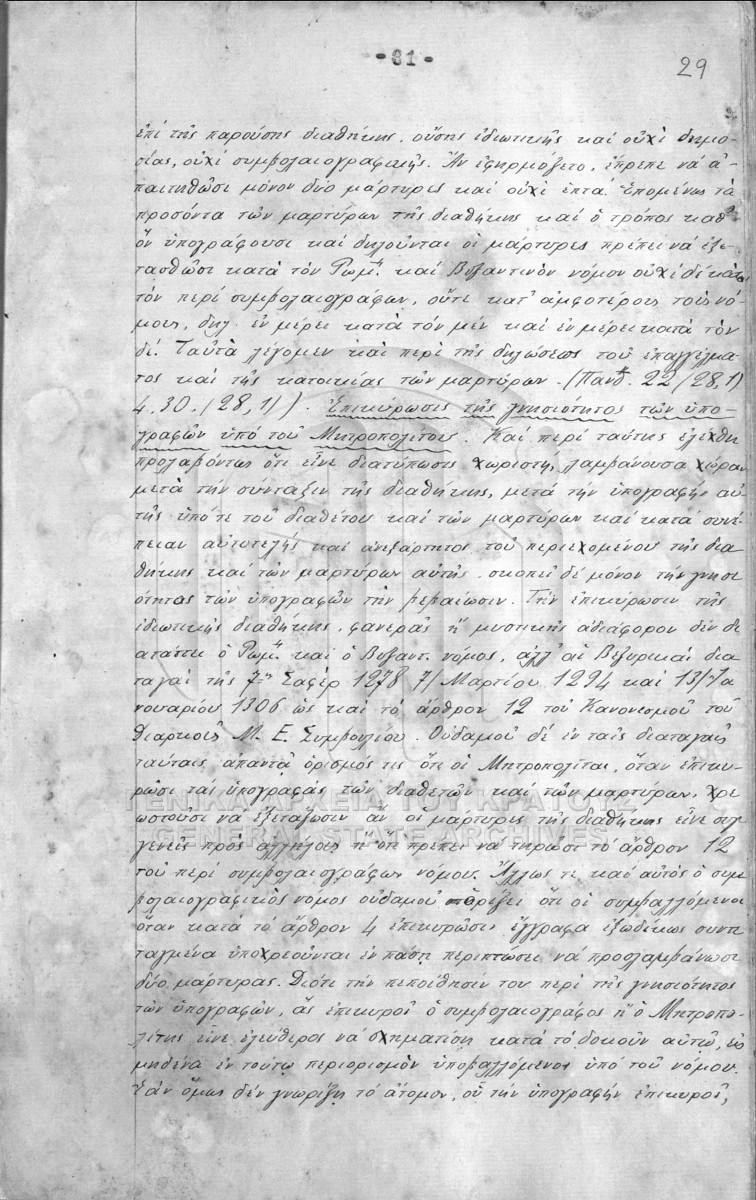 -61-
29
ἐπὶ τῆς παρούσης διαθήκης, οὔσης ἰδιωτικῆς καὶ οὐχὶ δημο-
σίας, οὐχὶ συμβολαιογραφικῆς. Ἂν ἐφηρμόζετο, ἔπρεπε νὰ ἀ-
παιτηθῶσι μόνον δύο μάρτυρες καὶ οὐχὶ ἑπτά. Ἑπομένως τὰ
προσόντα τῶν μαρτύρων τῆς διαθήκης καὶ ὁ τρόπος καθ'
ὃν ὑπογράφουσι καὶ δηλοῦνται οἱ μάρτυρες πρέπει νὰ ἐξε-
τασθῶσι κατὰ τὸν Ρωμ. καὶ Βυζαντινὸν νόμον οὐχὶ δὲ κατὰ
τὸν περὶ συμβολαιογράφων, οὔτε κατ' ἀμφοτέρους τοὺς νό-
μους, δηλ. ἐν μέρει κατὰ τὸν μὲν καὶ ἐν μέρει κατὰ τὸν
δέ. Ταῦτα λέγομεν καὶ περὶ τῆς δηλώσεως τοῦ ἐπαγγέλμα-
τος καὶ τῆς κατοικίας τῶν μαρτύρων. (Πανδ. 22 (28,1)
4.30. (28,1)). Ἐπικύρωσις τῆς γνησιότητος τῶν ὑπο-
γραφῶν ὑπὸ τοῦ Μητροπολίτου. Καὶ περὶ ταύτης ἐλέχθη
προλαβόντως ὅτι εἶνε διατύπωσις χωριστή, λαμβάνουσα χώραν
μετὰ τὴν σύνταξιν τῆς διαθήκης, μετὰ τὴν ὑπογραφὴν αὐ-
τῆς ὑπό τε τοῦ διαθέτου καὶ τῶν μαρτύρων καὶ κατὰ συνέ-
πειαν αὐτοτελὴς καὶ ἀνεξάρτητος τοῦ περιεχομένου τῆς δια-
θήκης καὶ τῶν μαρτύρων αὐτῆς, σκοπεῖ δὲ μόνον τὴν γνησι-
ότητος τῶν ὑπογραφῶν τὴν βεβαίωσιν. Τὴν ἐπικύρωσιν τῆς
ἰδιωτικῆς διαθήκης, φανερᾶς ἢ μυστικῆς ἀδιάφορον δὲν δι-
ατάττει ὁ Ρωμ. καὶ ὁ Βυζαντ. νόμος, ἀλλ' αἱ Βεζυρικαὶ δια
ταγαὶ τῆς 7ης Σαφὲρ 1278 7/ Μαρτίου 1294 καὶ 13/ Ια
νουαρίου 1306 ὡς καὶ τὸ ἄρθρον 12 τοῦ Κανονισμοῦ τοῦ
Διαρκοῦς Μ. Ε. Συμβουλίου. Οὐδαμοῦ δὲ ἐν ταῖς διαταγαῖς
ταύταις ἀπαντᾷ ὁρισμός τις ὅτι οἱ Μητροπολῖται, ὅταν ἐπικυ-
ρῶσι τὰς ὑπογραφὰς τῶν διαθετῶν καὶ τῶν μαρτύρων, χρε
ωστοῦσι νὰ ἐξετάζωσιν ἂν οἱ μάρτυρες τῆς διαθήκης εἶνε συγ-
γενεῖς πρὸς ἀλλήλους ἢ ὅτι πρέπει νὰ τηρῶσι τὸ ἄρθρον 12
τοῦ περὶ συμβολαιογράφων νόμου. Ἄλλως τε καὶ αὐτὸς ὁ συμ
βολαιογραφικὸς νόμος οὐδαμοῦ ὁρίζει ὅτι οἱ συμβαλλόμενοι
ὅταν κατὰ τὸ ἄρθρον 4 ἐπικυρῶσιν ἔγγραφα ἐξωδίκως συντε
ταγμένα ὑποχρεοῦνται ἐν πάσῃ περιπτώσει νὰ προσλαμβάνωσι
δύο μάρτυρας. Διότι τὴν πεποίθησίν του περὶ τῆς γνησιότητος
τῶν ὑπογραφῶν, ἃς ἐπικυροῖ ὁ συμβολαιογράφος ἢ ὁ Μητροπο-
λίτης εἶνε ἐλεύθερος νὰ σχηματίσῃ κατὰ τὸ δοκοῦν αὐτῷ, εἰς
μηδένα ἐν τούτῳ περιορισμὸν ὑποβαλλόμενος ὑπὸ τοῦ νόμου.
Ἐὰν ὅμως δὲν γνωρίζῃ τὸ ἄτομον, οὗ τὴν ὑπογραφὴν ἐπικυροῖ,
ΓΕΝΙΚΑ ΑΡΧΕΙΑ ΤΟΥ ΚΡΑΤΟΥΣ
GENERAL STATE ARCHIVES